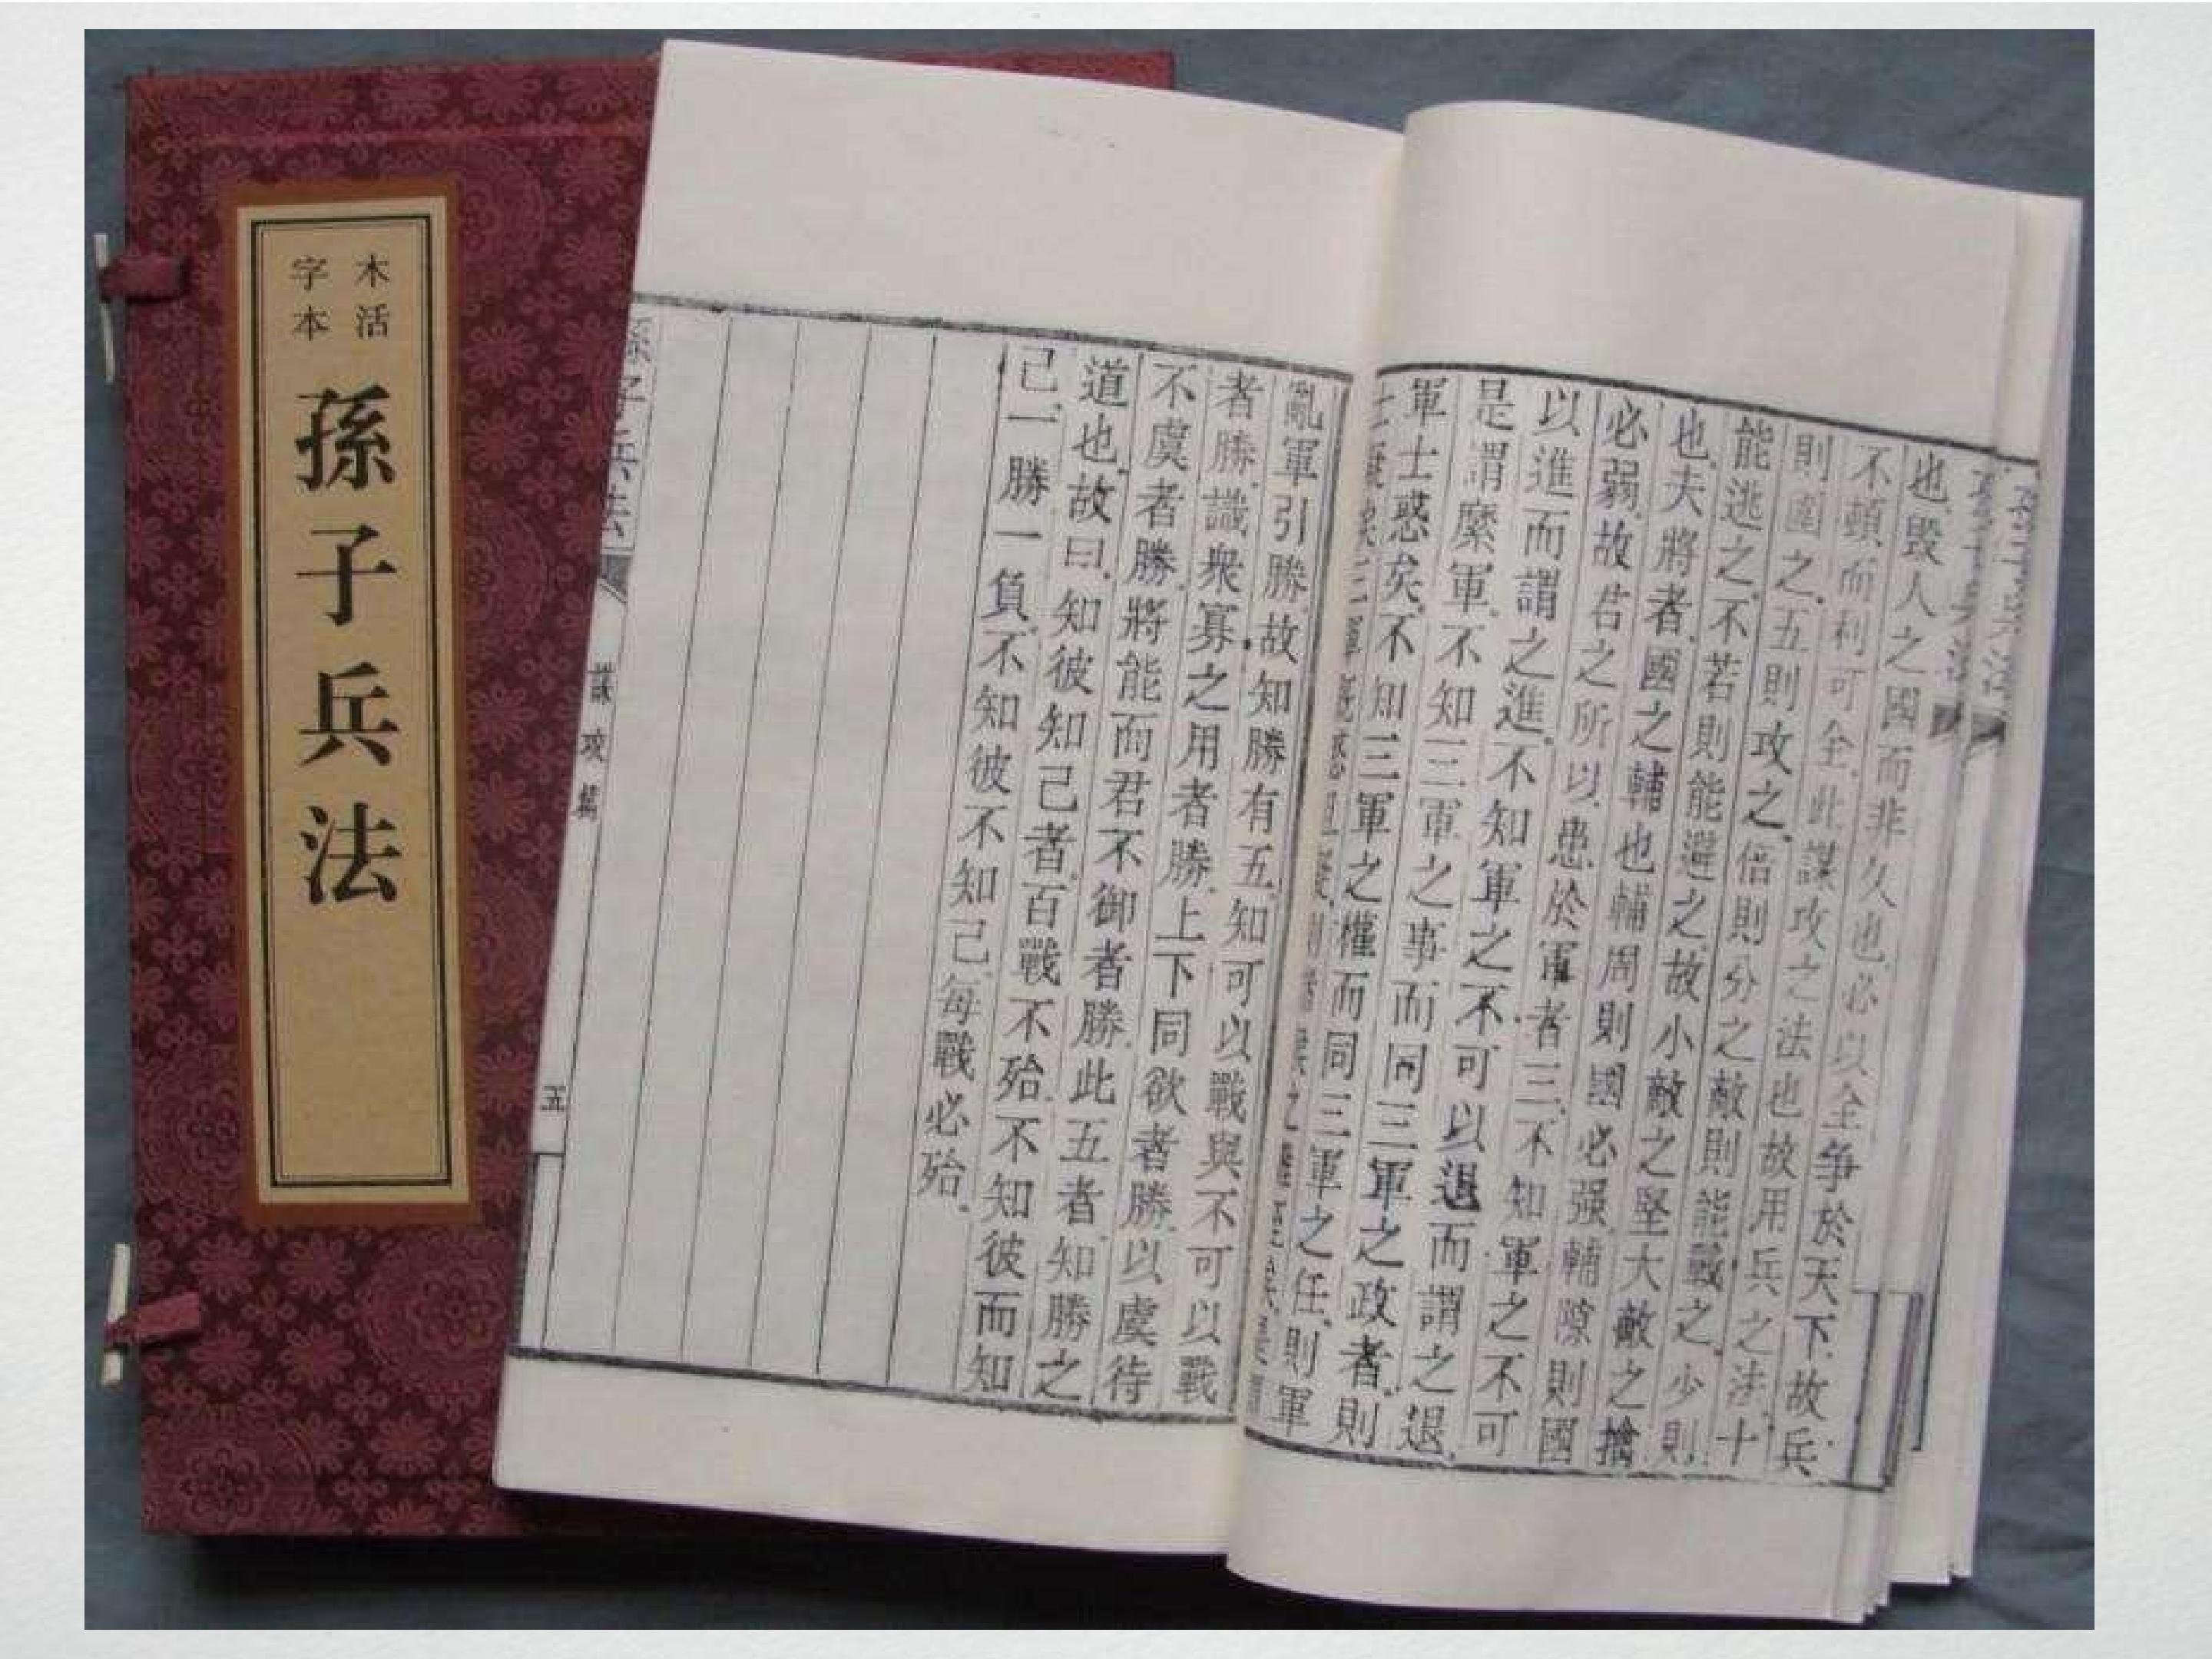 木活
字本
孫子兵法
也毀人之國而非久也必以全爭於天下故兵
不頓而利可全此謀攻之法也故用兵之法十
則圍之五則攻之倍則分之敵則能戰之少則
能逃之不若則能避之故小敵之堅大敵之擒
也夫將者國之輔也輔周則國必强輔隙則國
必弱故君之所以患於軍者三不知軍之不可
以進而謂之進不知軍之不可以退而謂之退
是謂縻軍不知三軍之事而同三軍之政者則
軍士惑矣不知三軍之權而同三軍之任則軍
亂軍引勝故知勝有五知可以戰與不可以戰
者勝識衆寡之用者勝上下同欲者勝以虞待
不虞者勝將能而君不御者勝此五者知勝之
道也故曰知彼知己者百戰不殆不知彼而知
己一勝一負不知彼不知己每戰必殆
孫子兵法
謀攻篇
五